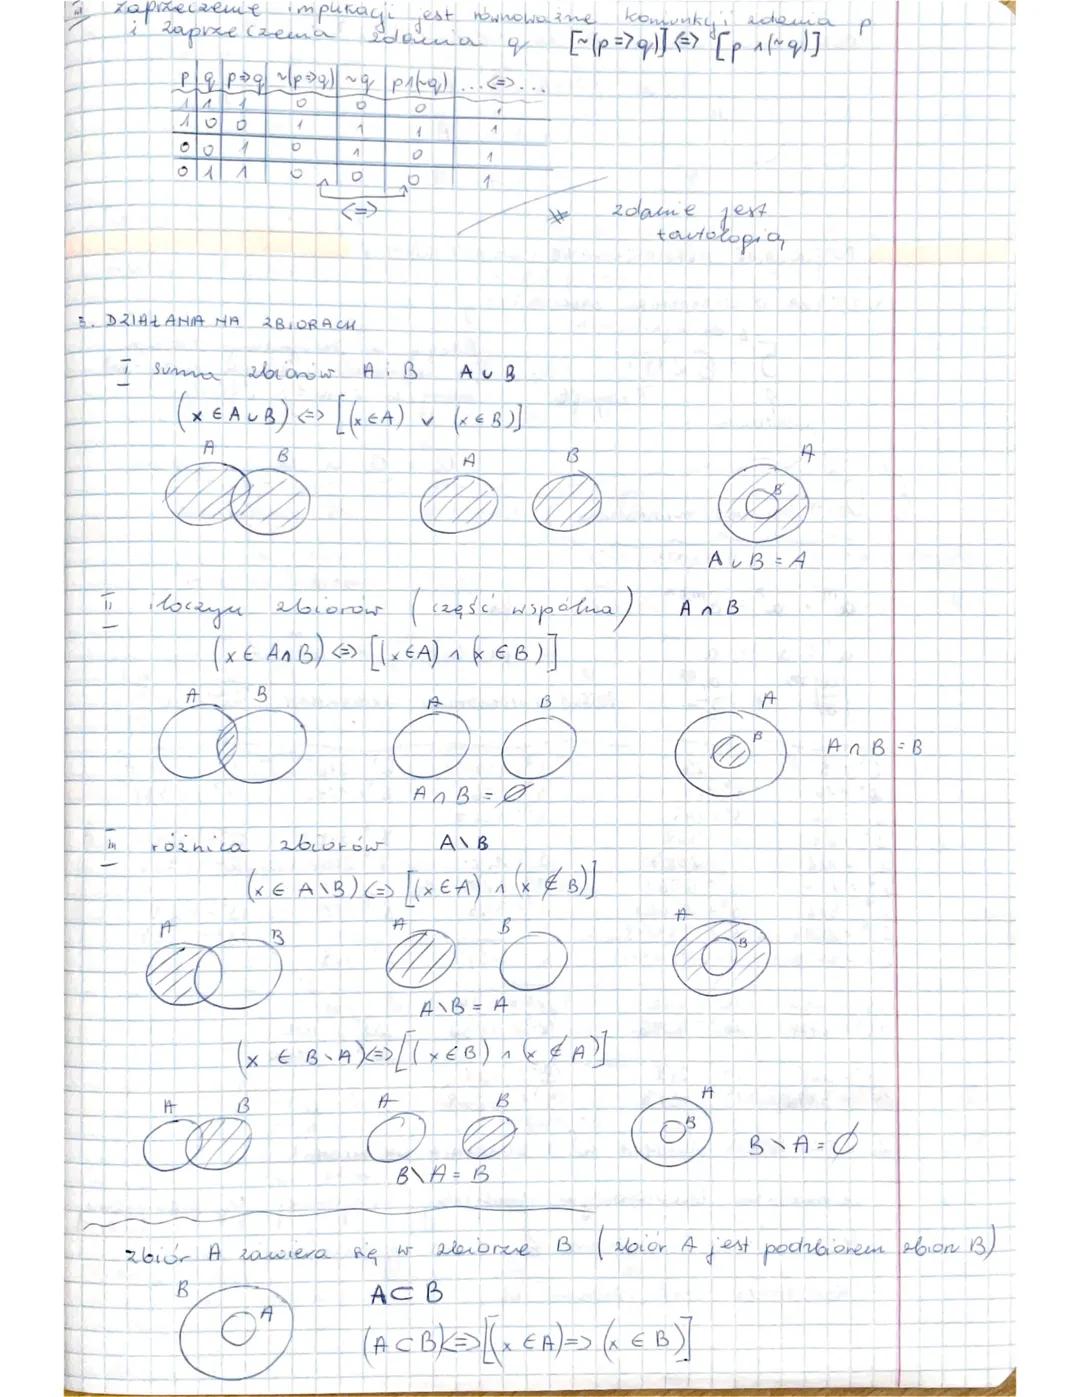 iii zaprzeczenie implikacji jest równoważne koniunkcji zdania p
i zaprzeczenia zdania q [~(p=>q)] <=> [p ∧ (~q)]
p q p=>q ~(p=>q) ~q p∧(~q) ...<=>...
1 1 1 0 0 0 1
1 0 0 1 1 1 1
0 0 1 0 1 0 1
0 1 1 0 0 0 1
<=>
* zdanie jest
tautologią
3. DZIAŁANIA NA ZBIORACH
I suma zbiorów A i B A ∪ B
(x ∈ A ∪ B) <=> [(x ∈ A) ∨ (x ∈ B)]
A B A B A
B
A ∪ B = A
II iloczyn zbiorów (część wspólna) A ∩ B
(x ∈ A∩B) <=> [(x ∈ A) ∧ (x ∈ B)]
A B A B A
B A ∩ B = B
A ∩ B = ∅
III różnica zbiorów A \ B
(x ∈ A\B) <=> [(x ∈ A) ∧ (x ∉ B)]
A B A B A
B
A\B = A
(x ∈ B\A) <=> [(x ∈ B) ∧ (x ∉ A)]
A B A B A
B B \ A = ∅
B\A = B
zbiór A zawiera się w zbiorze B (zbiór A jest podzbiorem zbioru B)
B A ⊂ B
A
(A ⊂ B) <=> [(x ∈ A) => (x ∈ B)]